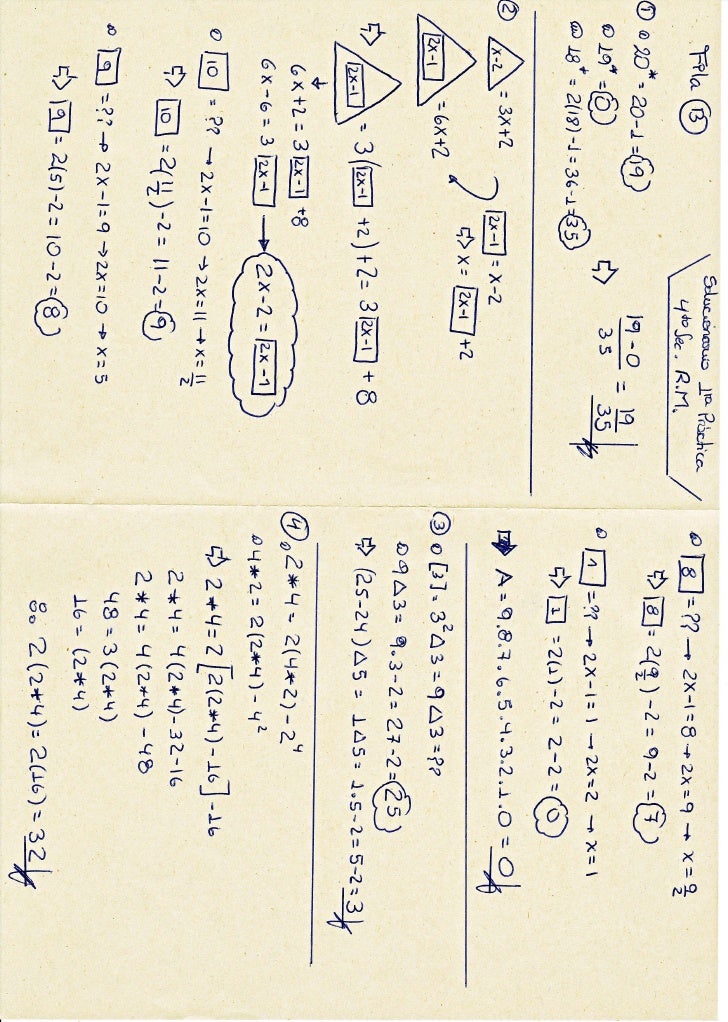 Solucionario 1ra Práctica
4to Sec. R.M.
① • 20* = 20-1 = 19
• 19* = 0
• 18* = 2(18)-1 = 36-1 = 35
⇨ 19-0/35 = 19/35
② x-2 = 3x+2
2x-1 = x-2
⇨ x = 2x-1 +2
2x-1 = 6x+2
⇨ 2x-1 = 3(2x-1 +2)+2 = 3 2x-1 + 8
6x+2 = 3 2x-1 +8
6x-6 = 3 2x-1 → 2x-2 = 2x-1
• 10 = ?? → 2x-1=10 → 2x=11 → x=11/2
⇨ 10 = 2(11/2)-2 = 11-2 = 9
• 9 = ?? → 2x-1=9 → 2x=10 → x=5
⇨ 9 = 2(5)-2 = 10-2 = 8
• 8 = ?? → 2x-1=8 → 2x=9 → x=9/2
⇨ 8 = 2(9/2)-2 = 9-2 = 7
• 1 = ?? → 2x-1=1 → 2x=2 → x=1
⇨ 1 = 2(1)-2 = 2-2 = 0
A = 9.8.7.6.5.4.3.2.1.0 = 0
③ • [3] = 3² Δ 3 = 9 Δ 3 = ??
• 9 Δ 3 = 9.3-2 = 27-2 = 25
⇨ (25-24) Δ 5 = 1 Δ 5 = 1.5-2 = 5-2 = 3
④ • 2*4 = 2(4*2)-2⁴
• 4*2 = 2(2*4)-4²
⇨ 2*4 = 2[2(2*4)-16]-16
2*4 = 4(2*4)-32-16
2*4 = 4(2*4)-48
48 = 3(2*4)
16 = (2*4)
2(2*4) = 2(16) = 32